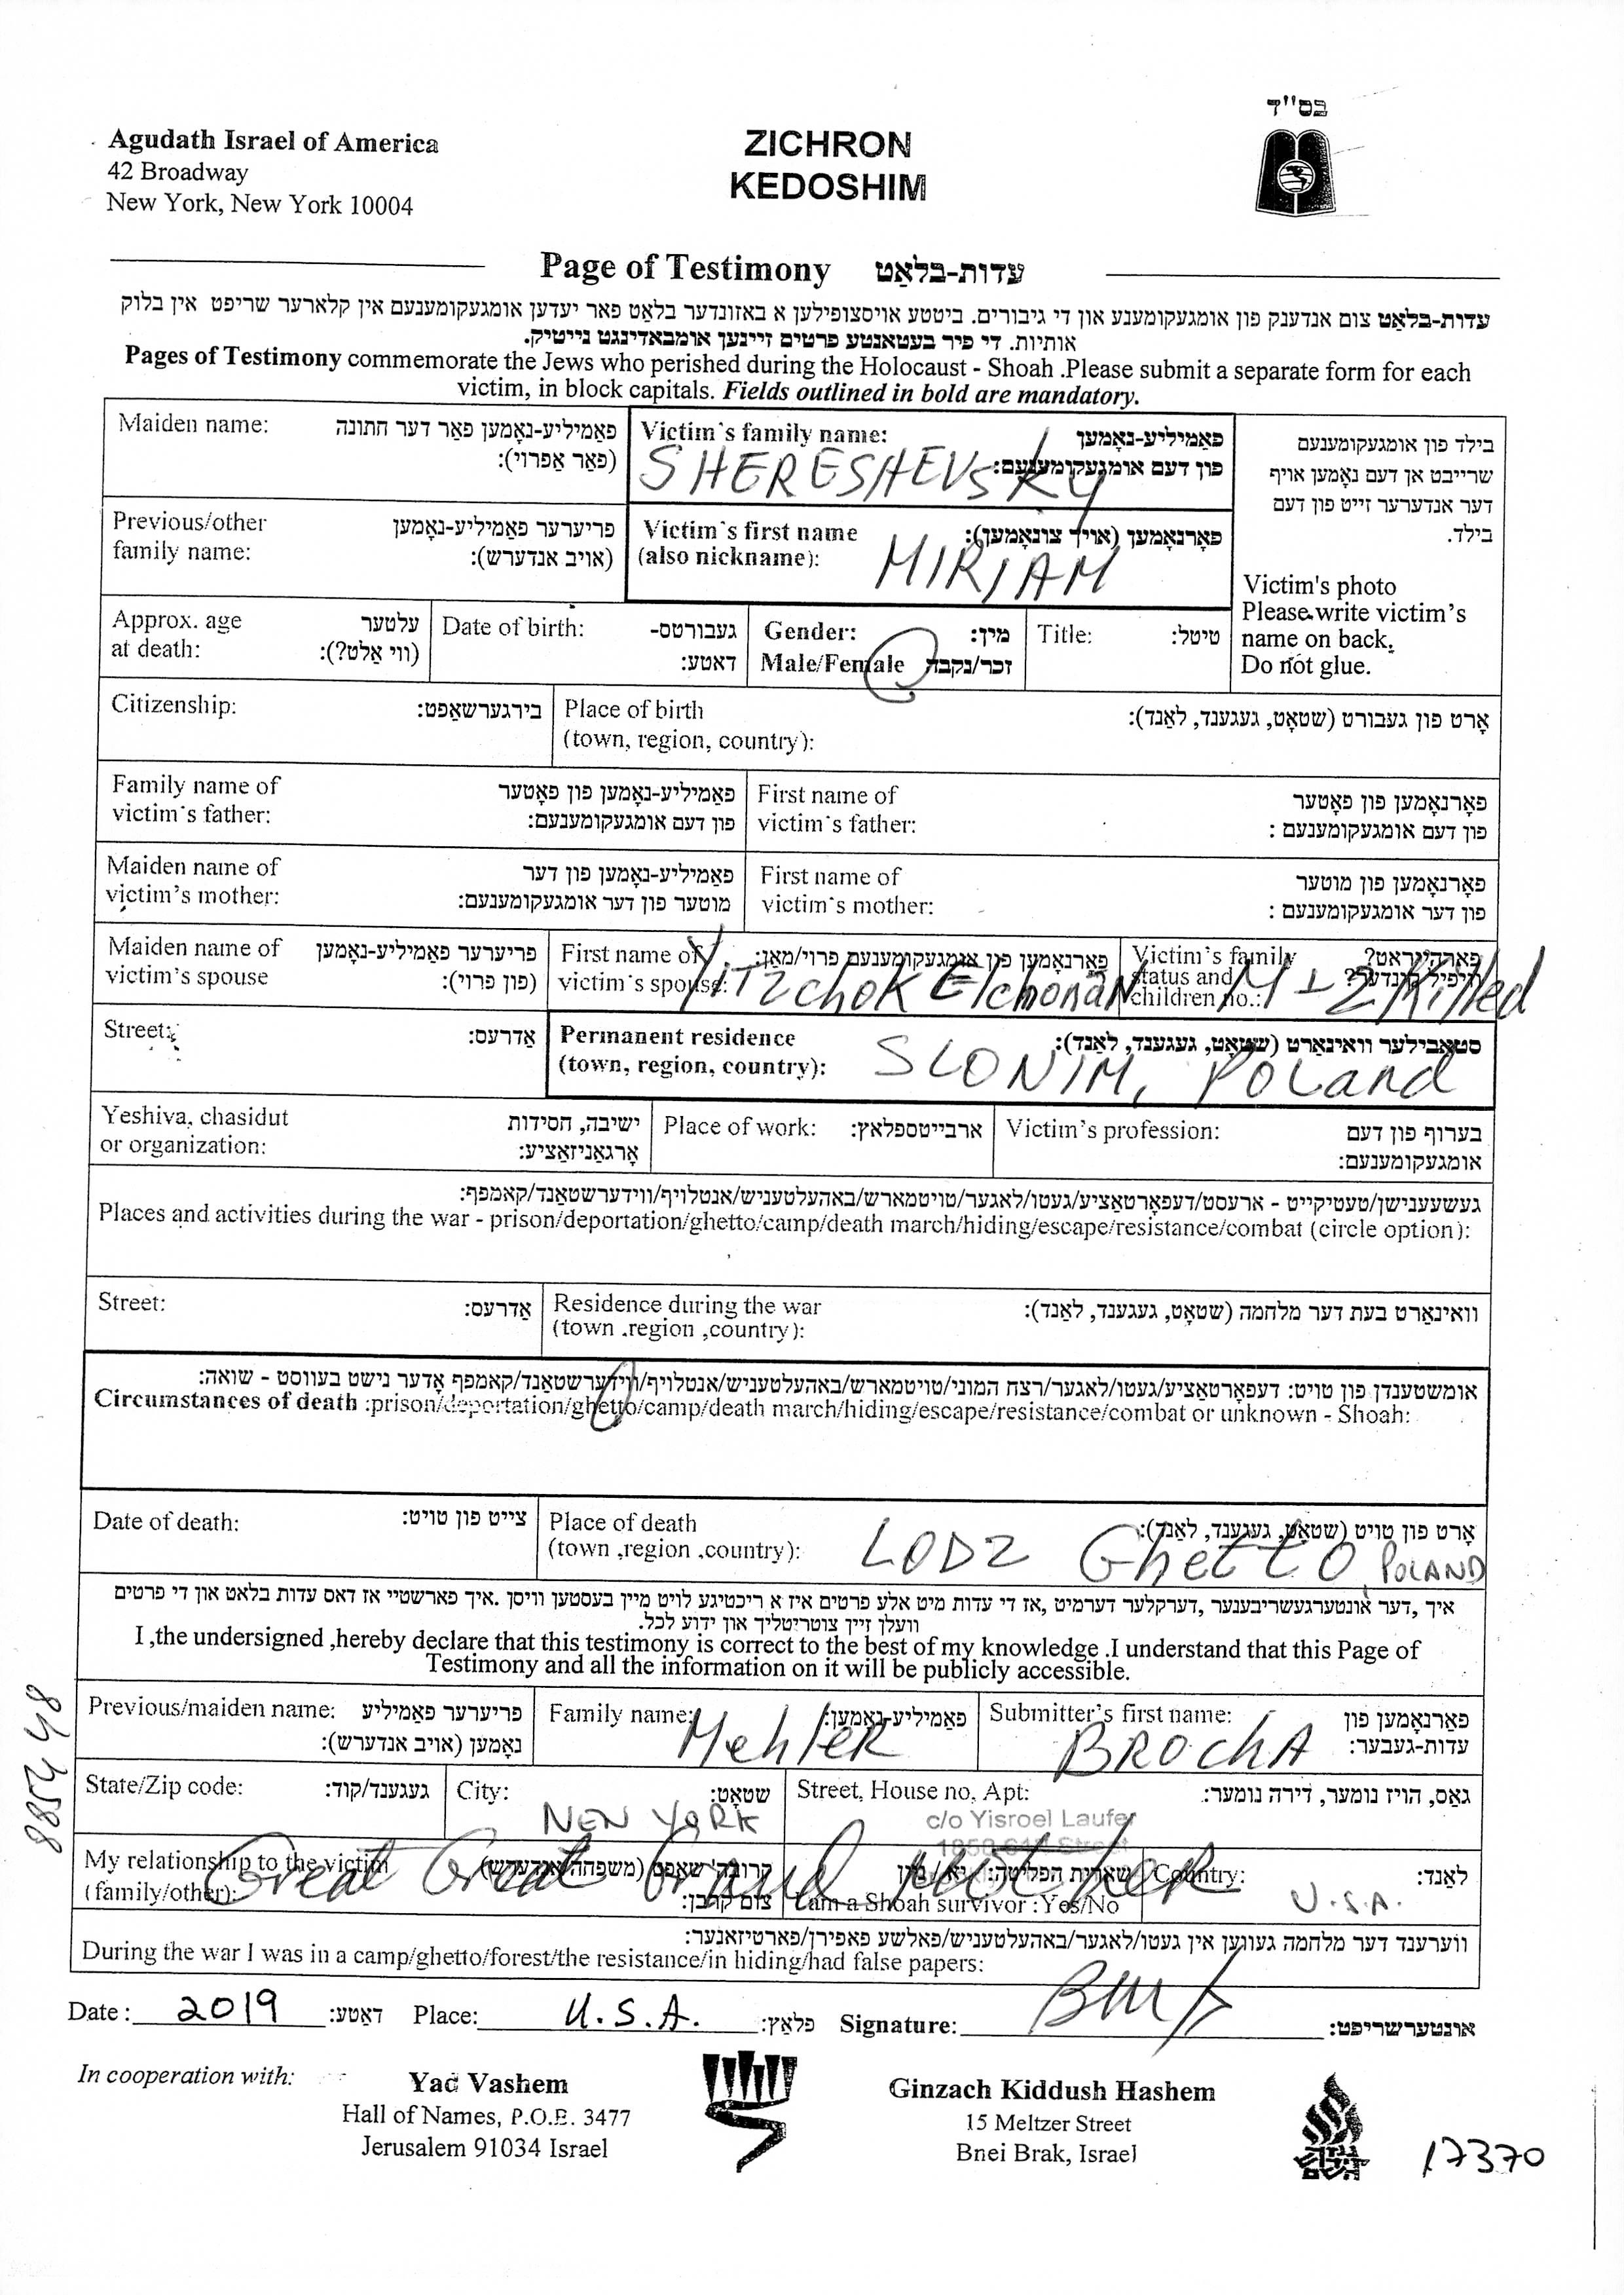 בס"ד
Agudath Israel of America
42 Broadway
New York, New York 10004
ZICHRON
KEDOSHIM
Page of Testimony עדות-בלאַט
עדות-בלאַט צום אנדענק פון אומגעקומענע און די גיבורים. ביטטע אויסצופילען א באזונדער בלאט פאר יעדען אומגעקומענעם אין קלארער שריפט אין בלוק
אותיות. די פיר בעטאנטע פרטים זיינען אומבאדינגט נייטיק.
Pages of Testimony commemorate the Jews who perished during the Holocaust - Shoah .Please submit a separate form for each
victim, in block capitals. Fields outlined in bold are mandatory.
Maiden name: פאַמיליע-נאָמען פאר דער חתונה
(פאר אַפרוי):
Victim's family name: פאַמיליע-נאָמען
פון דעם אומגעקומענעם:
SHERESHEVSKY
בילד פון אומגעקומענעם
שרייבט אן דעם נאָמען אויף
דער אנדערער זייט פון דעם
בילד.
Victim's photo
Please write victim's
name on back.
Do not glue.
Previous/other פריערער פאַמיליע-נאָמען
family name: (אויב אנדערש):
Victim's first name פאָרנאָמען (אויך צונאָמען):
(also nickname):
MIRIAM
Approx. age עלטער
at death: (ווי אַלט?):
Date of birth: געבורטס-
דאטע:
Gender: מין:
Male/Female זכר/נקבה
Title: טיטל:
Citizenship: בירגערשאַפט:
Place of birth אָרט פון געבורט (שטאָט, געגענד, לאַנד):
(town, region, country):
Family name of פאַמיליע-נאָמען פון פאָטער
victim's father: פון דעם אומגעקומענעם:
First name of פאָרנאָמען פון פאָטער
victim's father: פון דעם אומגעקומענעם :
Maiden name of פאַמיליע-נאָמען פון דער
victim's mother: מוטער פון דער אומגעקומענעם:
First name of פאָרנאָמען פון מוטער
victim's mother: פון דער אומגעקומענעם :
Maiden name of פריערער פאַמיליע-נאָמען
victim's spouse (פון פרוי):
First name of פאָרנאָמען פון אומגעקומענעם פרוי/מאַן:
victim's spouse:
Yitzchok Elchonan
Victim's family פארהייראט?
status and וויפיל קינדער?
children no.:
M + 2 Killed
Street: אַדרעס:
Permanent residence סטאַבילער וואינאַרט (שטאָט, געגענד, לאַנד):
(town, region, country):
SLONIM, Poland
Yeshiva, chasidut ישיבה, חסידות
or organization: אָרגאַניזאַציע:
Place of work: ארבייטספלאץ:
Victim's profession: בערוף פון דעם
אומגעקומענעם:
געשעענישן/טעטיקייט - ארעסט/דעפאָרטאַציע/געטו/לאגער/טויטמארש/באהעלטעניש/אנטלויף/ווידערשטאַנד/קאמפף:
Places and activities during the war - prison/deportation/ghetto/camp/death march/hiding/escape/resistance/combat (circle option):
Street: אַדרעס:
Residence during the war וואינאַרט בעת דער מלחמה (שטאָט, געגענד, לאַנד):
(town .region ,country):
אומשטענדן פון טויט: דעפאָרטאַציע/געטו/לאגער/רצח המוני/טויטמארש/באהעלטעניש/אנטלויף/ווידערשטאַנד/קאמפף אָדער נישט בעוווסט - שואה:
Circumstances of death :prison/deportation/ghetto/camp/death march/hiding/escape/resistance/combat or unknown - Shoah:
Date of death: צייט פון טויט:
Place of death אָרט פון טויט (שטאָט, געגענד, לאַנד):
(town ,region .country):
LODZ Ghetto, POLAND
איך ,דער אונטערגעשריבענער ,דערקלער דערמיט ,אז די עדות מיט אלע פרטים איז א ריכטיגע לויט מיין בעסטען וויסן .איך פארשטיי אז דאס עדות בלאט און די פרטים
וועלן זיין צוטריטליך און ידוע לכל.
I ,the undersigned ,hereby declare that this testimony is correct to the best of my knowledge .I understand that this Page of
Testimony and all the information on it will be publicly accessible.
Previous/maiden name: פריערער פאַמיליע
נאָמען (אויב אנדערש):
Family name: פאַמיליע-נאָמען:
Mehler
Submitter's first name: פאַרנאָמען פון
עדות-געבער:
BROCHA
State/Zip code: געגענד/קוד:
City: שטאָט:
NEW YORK
Street, House no, Apt: גאַס, הויז נומער, דירה נומער:
c/o Yisroel Laufer
My relationship to the victim
(family/other): צום קרבן:
Great Great Grand Mother
I am a Shoah survivor :Yes/No
Country: לאַנד:
U.S.A.
ווערענד דער מלחמה געווען אין געטו/לאגער/באהעלטעניש/פאלשע פאפירן/פארטיזאנער:
During the war I was in a camp/ghetto/forest/the resistance/in hiding/had false papers:
Date : 2019 דאַטע: Place: U.S.A. פלאַץ: Signature: אונטערשריפט:
In cooperation with:
Yad Vashem
Hall of Names, P.O.B. 3477
Jerusalem 91034 Israel
Ginzach Kiddush Hashem
15 Meltzer Street
Bnei Brak, Israel
גנזך
קידוש
השם
17370
885448